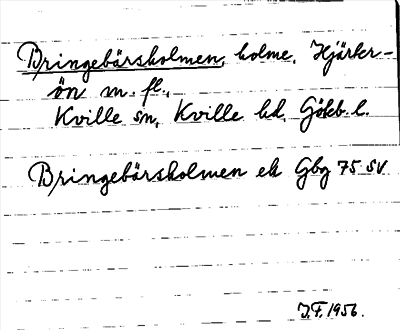 Bringebärsholmen, holme, Hjärter-
ön m. fl.,
Kville sn, Kville hd, Götb. l.
Bringebärsholmen ek Gbg 75 SV
J.F. 1956.